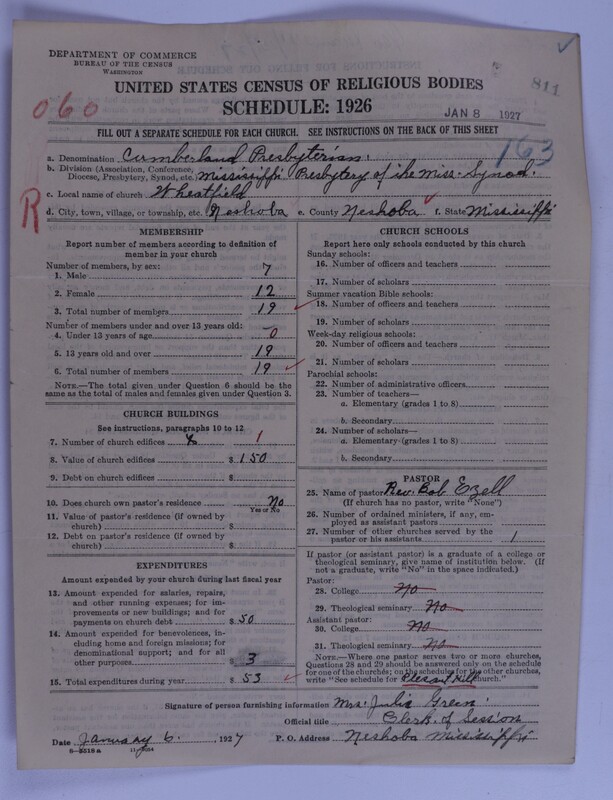 DEPARTMENT OF COMMERCE
BUREAU OF THE CENSUS
WASHINGTON
UNITED STATES CENSUS OF RELIGIOUS BODIES
SCHEDULE: 1926
060
JAN 8 1927
811
FILL OUT A SEPARATE SCHEDULE FOR EACH CHURCH. SEE INSTRUCTIONS ON THE BACK OF THIS SHEET
163
a. Denomination Cumberland Presbyterian.
b. Division (Association, Conference, Diocese, Presbytery, Synod, etc. Mississippi Presbytery of the Miss. Synod.
c. Local name of church Wheatfield
R
d. City, town, village, or township, etc. Neshoba e. County Neshoba f. State Mississippi
MEMBERSHIP
Report number of members according to definition of
member in your church
Number of members, by sex:
1. Male 7
2. Female 12
3. Total number of members 19
Number of members under and over 13 years old:
4. Under 13 years of age 0
5. 13 years old and over 19
6. Total number of members 19
NOTE.—The total given under Question 6 should be
the same as the total of males and females given under Question 3.
CHURCH BUILDINGS
See instructions, paragraphs 10 to 12
7. Number of church edifices 1
8. Value of church edifices $ 150
9. Debt on church edifices $
10. Does church own pastor's residence No
Yes or No
11. Value of pastor's residence (if owned by
church) $
12. Debt on pastor's residence (if owned by
church) $
EXPENDITURES
Amount expended by your church during last fiscal year
13. Amount expended for salaries, repairs,
and other running expenses; for im-
provements or new buildings; and for
payments on church debt $ 50
14. Amount expended for benevolences, in-
cluding home and foreign missions; for
denominational support; and for all
other purposes $ 3
15. Total expenditures during year $ 53
CHURCH SCHOOLS
Report here only schools conducted by this church
Sunday schools:
16. Number of officers and teachers
17. Number of scholars
Summer vacation Bible schools:
18. Number of officers and teachers
19. Number of scholars
Week-day religious schools:
20. Number of officers and teachers
21. Number of scholars
Parochial schools:
22. Number of administrative officers
23. Number of teachers—
a. Elementary (grades 1 to 8)
b. Secondary
24. Number of scholars—
a. Elementary (grades 1 to 8)
b. Secondary
PASTOR
25. Name of pastor Rev. Bob Ezell
(If church has no pastor, write "None")
26. Number of ordained ministers, if any, em-
ployed as assistant pastors
27. Number of other churches served by the
pastor or his assistants 1
If pastor (or assistant pastor) is a graduate of a college or
theological seminary, give name of institution below. (If
not a graduate, write "No" in the space indicated.)
Pastor:
28. College No
29. Theological seminary No
Assistant pastor:
30. College No
31. Theological seminary No
NOTE.—Where one pastor serves two or more churches,
Questions 28 and 29 should be answered only on the schedule
for one of the churches; on the schedules for the other churches,
write "See schedule for Plesant Hill church."
Signature of person furnishing information Mrs. Julie Green
Official title Clerk of Session
Date January 6, 1927 P. O. Address Neshoba Mississippi
8—5518a